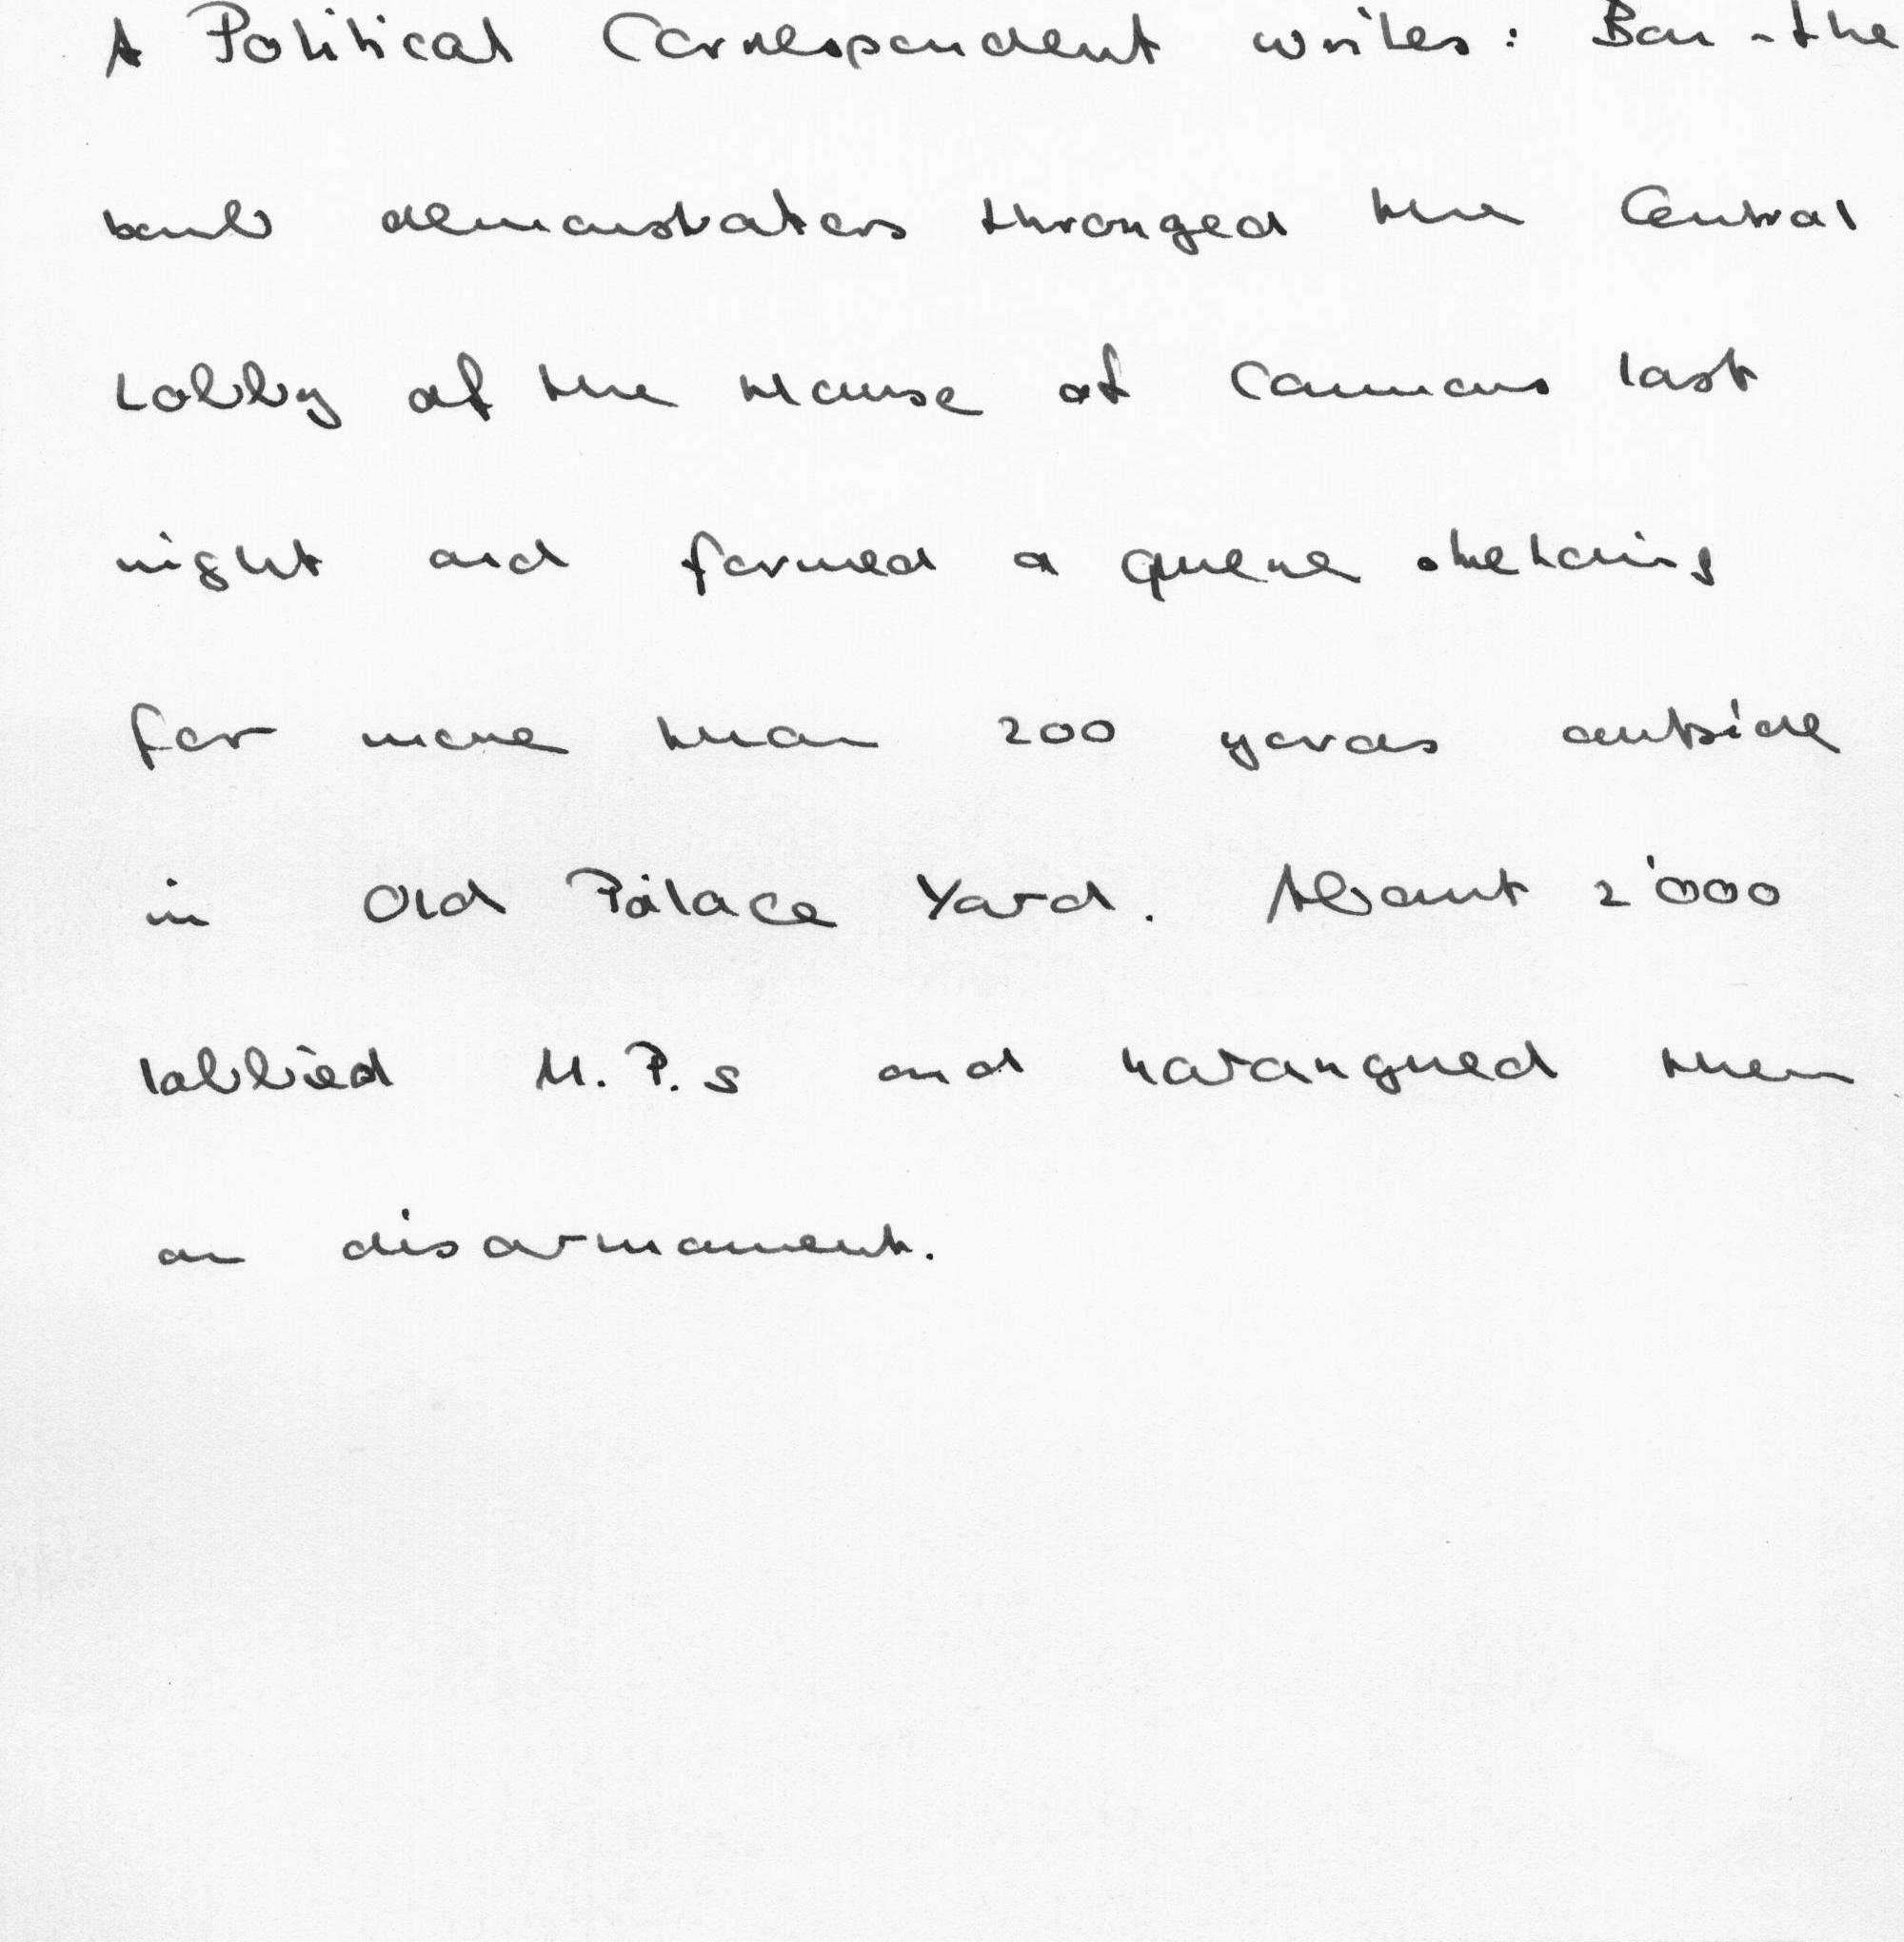 A Political Correspondent writes: Ban-the
bomb demonstrators thronged the Central
Lobby of the House of Commons last
night and formed a queue stretching
for more than 200 yards outside
in Old Palace Yard. About 2'000
lobbied M.P.s and harangued them
on disarmament.